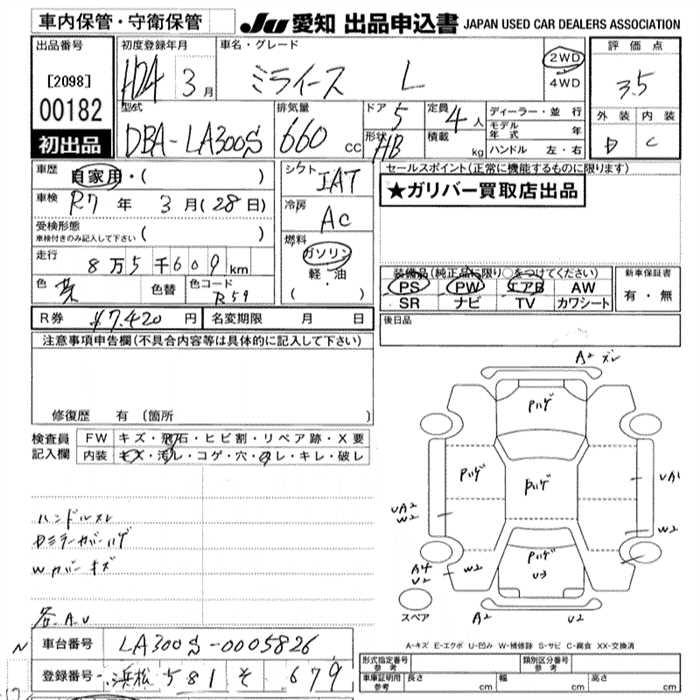 車内保管・守衛保管
JU 愛知 出品申込書 JAPAN USED CAR DEALERS ASSOCIATION
出品番号
[2098]
00182
初出品
初度登録年月
H24 3月
車名・グレード
ミライース L
2WD
4WD
評価点
3.5
外装 内装
D C
型式
DBA-LA300S
排気量
660 cc
ドア
5
形状
HB
定員
4人
積載
kg
ディーラー・並行
モデル年式 年
ハンドル 左・右
車歴
自家用・( )
車検
R7年 3月(28日)
受検形態
車検付きのみ記入して下さい ( )
走行
8万5千609km
色
色替
色コード
R59
シフト
IAT
冷房
AC
燃料
ガソリン
軽・油
( )
セールスポイント(正常に機能するものに限ります)
★ガリバー買取店出品
装備品(純正品に限り○をつけてください)
PS PW エアB AW
SR ナビ TV カワシート
新車保証書
有・無
R券 ¥7,420円
名変期限 月 日
後日品
注意事項申告欄(不具合内容等は具体的に記入して下さい)
修復歴 有(箇所 )
検査員記入欄
FW キズ・飛石・ヒビ割・リペア跡・X要
内装 キズ・汚レ・コゲ・穴・スレ・キレ・破レ
ハンドルスレ
Dミラーカバーハゲ
Wカバーキズ
各A.U
車台番号 LA300S-0005826
登録番号 浜松 581 そ 679
A2 ズレ
Pハゲ
Pハゲ
Pハゲ
Pハゲ
U3
UA2
W2
UA1
W2
A4
U2
W2
W2
A2
U2
スペア
A-キズ E-エクボ U-凹み W-補修跡 S-サビ C-腐食 XX-交換済
形式指定番号
参考
類別区分番号
参考
車庫証明用
参考
長さ cm
幅 cm
高さ cm